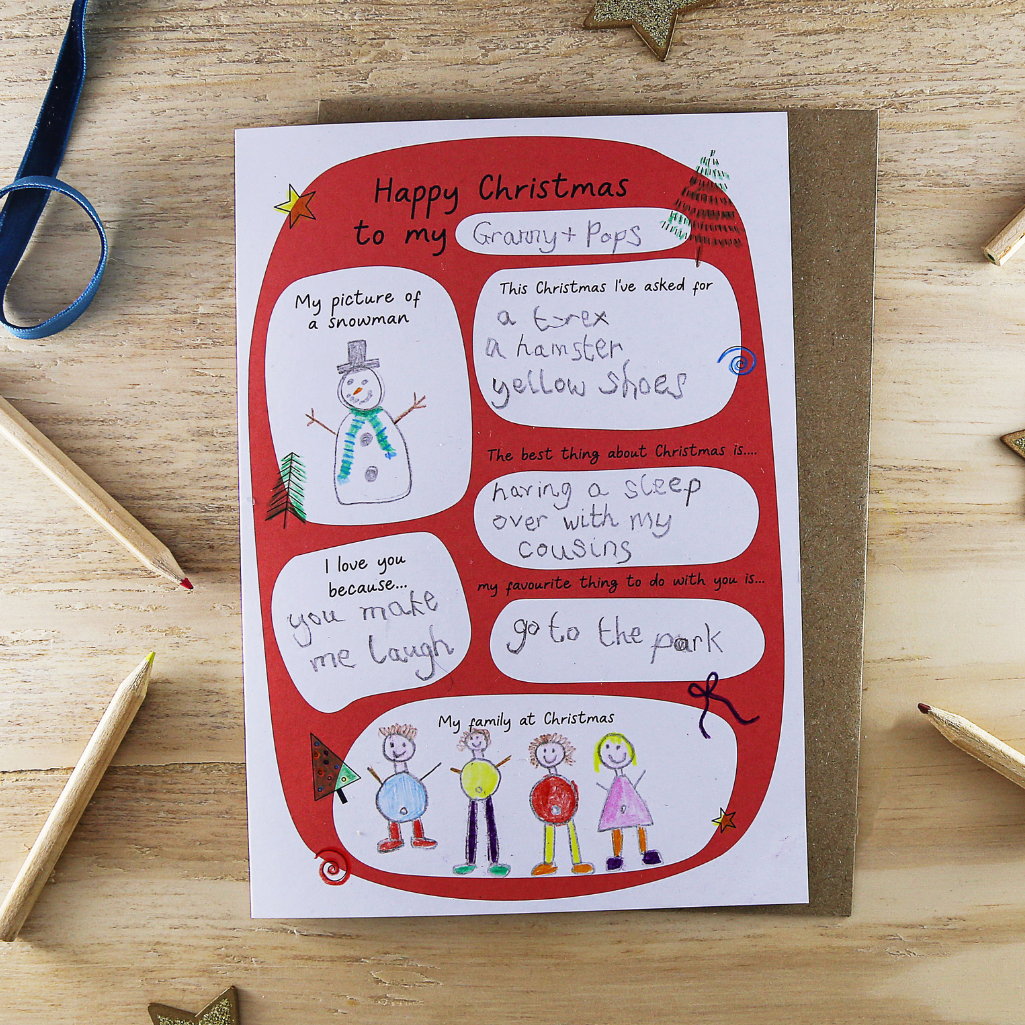 Happy Christmas
to my Granny + Pops
My picture of
a snowman
This Christmas I've asked for
a t-rex
a hamster
yellow shoes
The best thing about Christmas is....
having a sleep
over with my
cousins
I love you
because...
you make
me laugh
my favourite thing to do with you is...
go to the park
My family at Christmas